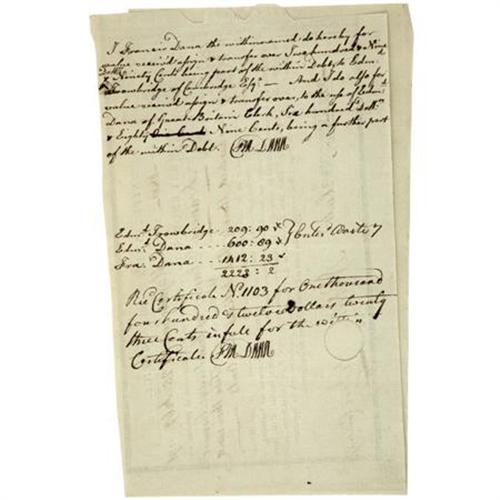 I Francis Dana the within named do hereby for
value received assign & transfer over Two hundred & Nine
Dollrs & Ninety Cents being part of the within Debt, to Edmd
Trowbridge of Cambridge Esqr. — And I do also for
value received assign & transfer over, to the use of Edmd
Dana of Great Britain Clerk, Six hundred Dollrs
& Eighty Nine Cents, being a further part
of the within Debt. FRA DANA
Edmd Trowbridge 209:90
Edmd Dana .... 600:89 } Enterd Waste 7
Fras Dana .... 1412:23
2223:2
Recd Certificate No. 1103 for One thousand
four hundred & twelve Dollars twenty
three Cents in full for the within
Certificate. FRA DANA